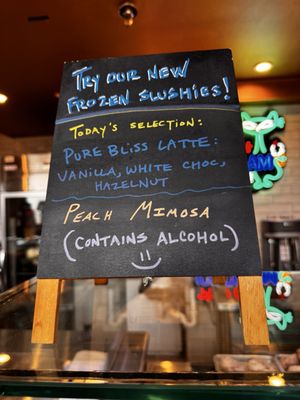 TRY OUR NEW
FROZEN SLUSHIES!
TODAY'S SELECTION:
PURE BLISS LATTE:
VANILLA, WHITE CHOC,
HAZELNUT
PEACH MIMOSA
(CONTAINS ALCOHOL)